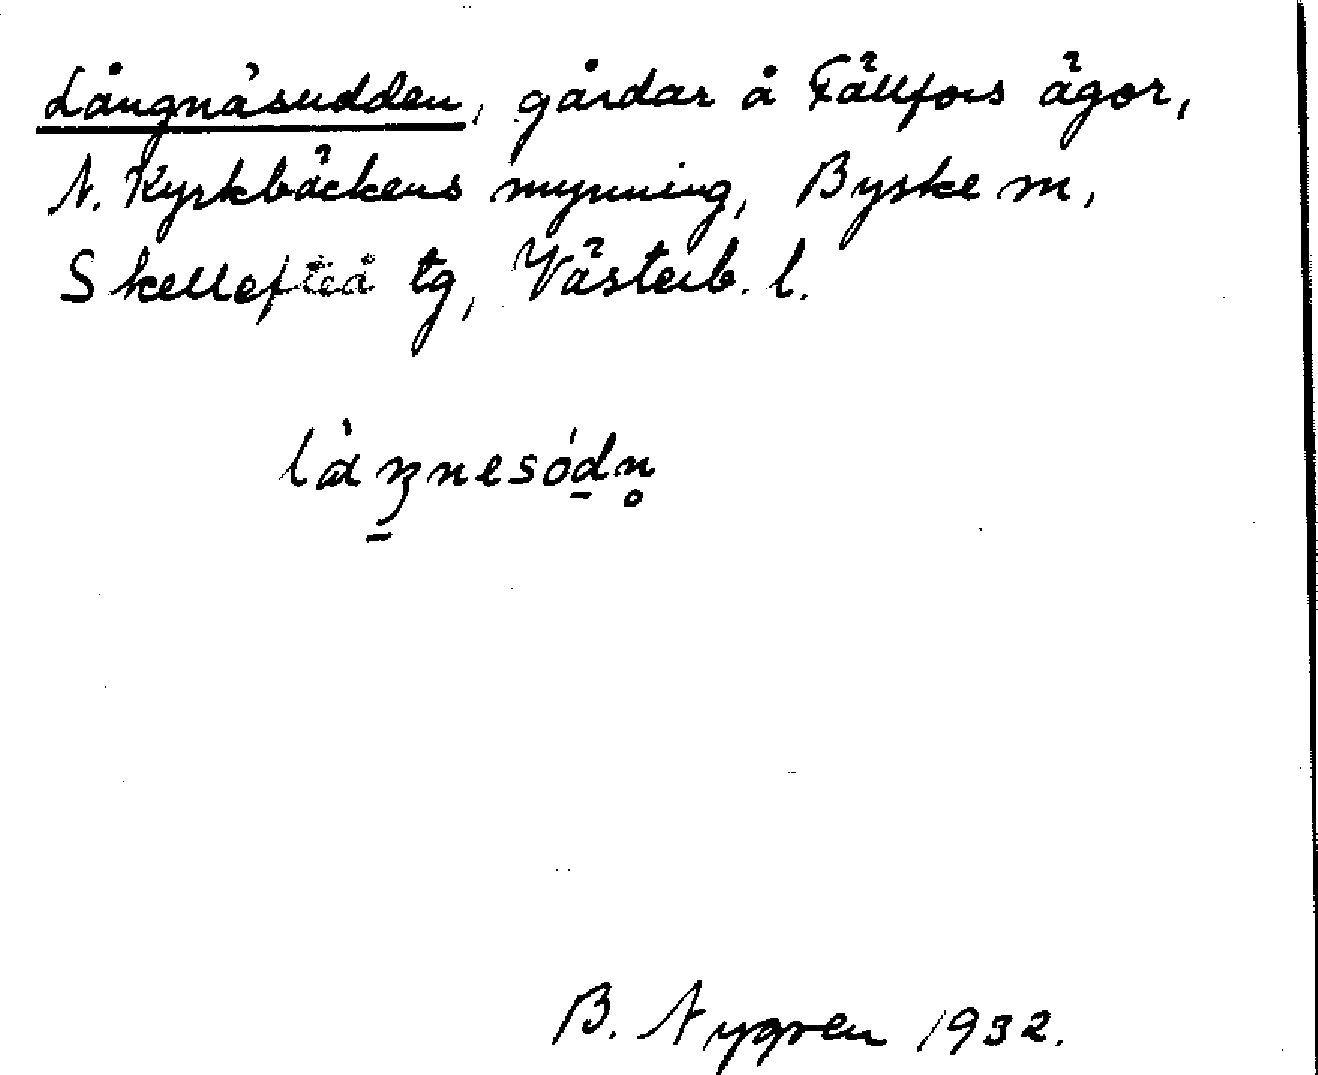 Långnäsudden, gårdar å Fällfors ägor,
N. Kyrkbäckens mynning, Byske sn,
Skellefteå tg, Västerb. l.
B. Nygren 1932.